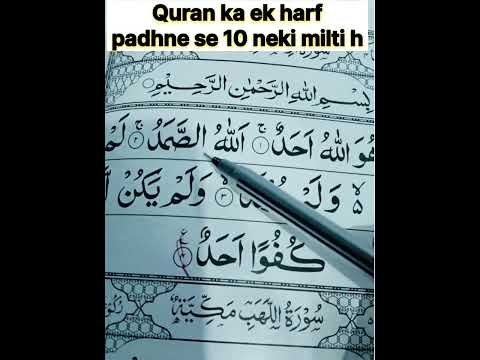 Quran ka ek harf
padhne se 10 neki milti h
بِسْمِ اللّٰهِ الرَّحْمٰنِ الرَّحِيْمِ
هُوَ اللّٰهُ اَحَدٌ ۚ۝۱ اَللّٰهُ الصَّمَدُ ۚ۝۲ لَمْ
۝۳ وَلَمْ يَكُنْ
كُفُوًا اَحَدٌ ۝۴
سُوْرَةُ اللَّهَبِ مَكِّيَّةٌ